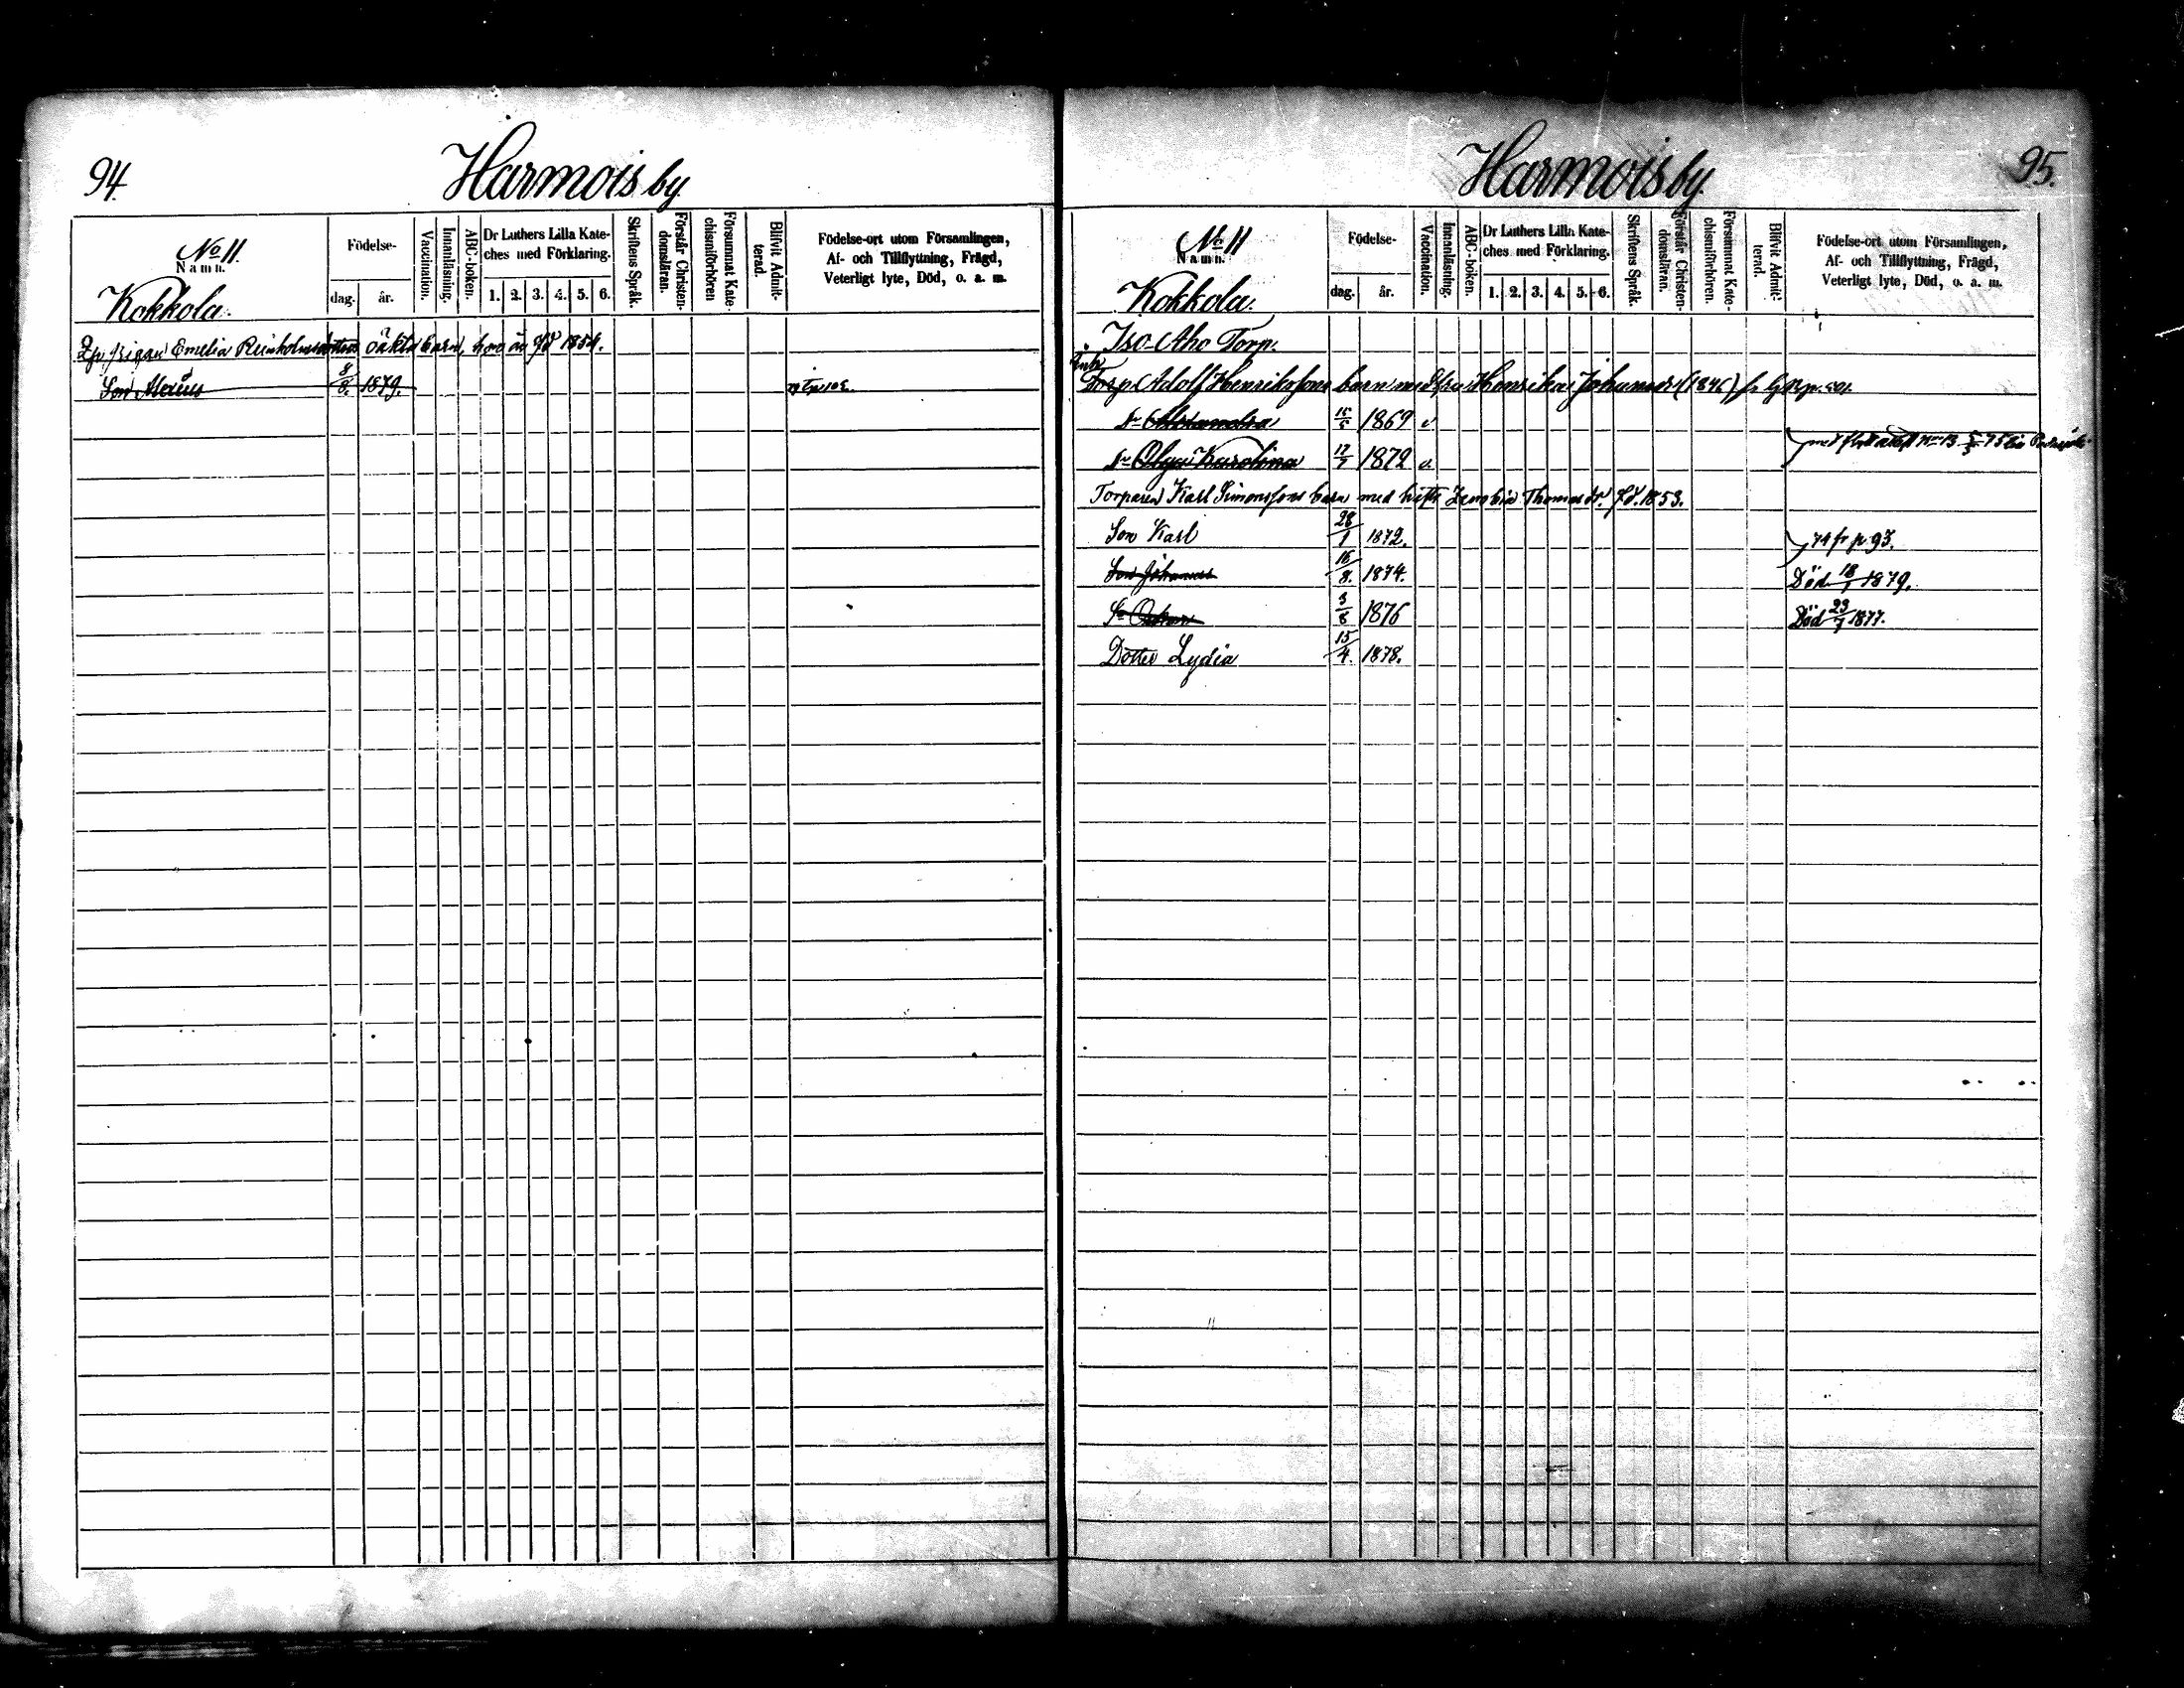 94.
Harmois by
No 11.
Namn.
Kokkola.
Födelse-
dag.
år.
Vaccination.
Innanläsning.
ABC-boken.
Dr Luthers Lilla Kate-
ches med Förklaring.
1. 2. 3. 4. 5. 6.
Skriftens Språk.
Förstår Christen-
domsläran.
Försummat Kate-
chismiförhören
Blifvit Admit-
terad.
Födelse-ort utom Församlingen,
Af- och Tillflyttning, Frägd,
Veterligt lyte, Död, o. a. m.
Emelia Reinholmsdotters oäkta barn, hon är fd 1854.
Son 8/8. 1879.
Harmois by.
95.
No 11
Namn.
Kokkola.
Födelse-
dag.
år.
Vaccination.
Innanläsning.
ABC-boken.
Dr Luthers Lilla Kate-
ches med Förklaring.
1. 2. 3. 4. 5. 6.
Skriftens Språk.
Förstår Christen-
domsläran.
Försummat Kate-
chismiförhören.
Blifvit Admit-
terad.
Födelse-ort utom Församlingen,
Af- och Tillflyttning, Frägd,
Veterligt lyte, Död, o. a. m.
Iso-Aho Torp.
Enk
Torp Adolf Henrikssons barn med Henrika Johansdr (1846)
Dr Alexandra 15/5 1869 v
Dr Olga Karolina 17/7 1872 v.
Torparen Karl Simonssons barn med hustr Zenobia Thomasdr. fd. 1853.
Son Karl 28/1 1872. 74 fr p. 93.
Son Johannes 16/8. 1874. Död 18/1 1879.
Sn Oskar 3/8 1876 Död 23/7 1877.
Dotter Lydia 15/4. 1878.